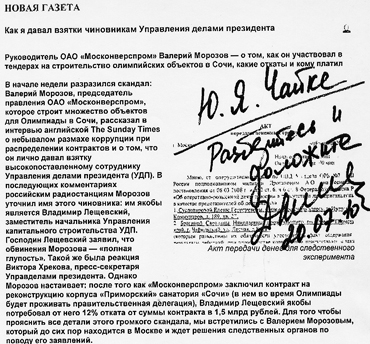 НОВАЯ ГАЗЕТА
Как я давал взятки чиновникам Управления делами президента
Руководитель ОАО «Москонверспром» Валерий Морозов — о том, как он участвовал в
тендерах на строительство олимпийских объектов в Сочи, какие откаты и кому платил
В начале недели разразился скандал:
Валерий Морозов, председатель
правления ОАО «Москонверспром»,
которое строит множество объектов
для Олимпиады в Сочи, рассказал в
интервью английской The Sunday Times
о небывалом размахе коррупции при
распределении контрактов и о том, что
он лично давал взятку
высокопоставленному сотруднику
Управления делами президента (УДП). В
последующих комментариях
российским радиостанциям Морозов
уточнил имя этого чиновника: им якобы
является Владимир Лещевский,
заместитель начальника Управления
капитального строительства УДП.
Господин Лещевский заявил, что
обвинения Морозова — «полная
глупость». Такой же была реакция
Виктора Хрекова, пресс-секретаря
Управделами президента. Однако
Морозов настаивает: после того как «Москонверспром» заключил контракт на
реконструкцию корпуса «Приморский» санатория «Сочи» (в нем во время Олимпиады
будет проживать правительственная делегация), Владимир Лещевский якобы
потребовал от него 12% отката от суммы контракта в 1,5 млрд рублей. Для того чтобы
прояснить все детали этого громкого скандала, мы встретились с Валерием Морозовым,
который до сих пор находится в Москве и ждет решения следственных органов по
поводу его заявления.
Ю. Я. Чайке
Разберитесь и
доложите
АКТ
Акт передачи денег для следственного
эксперимента